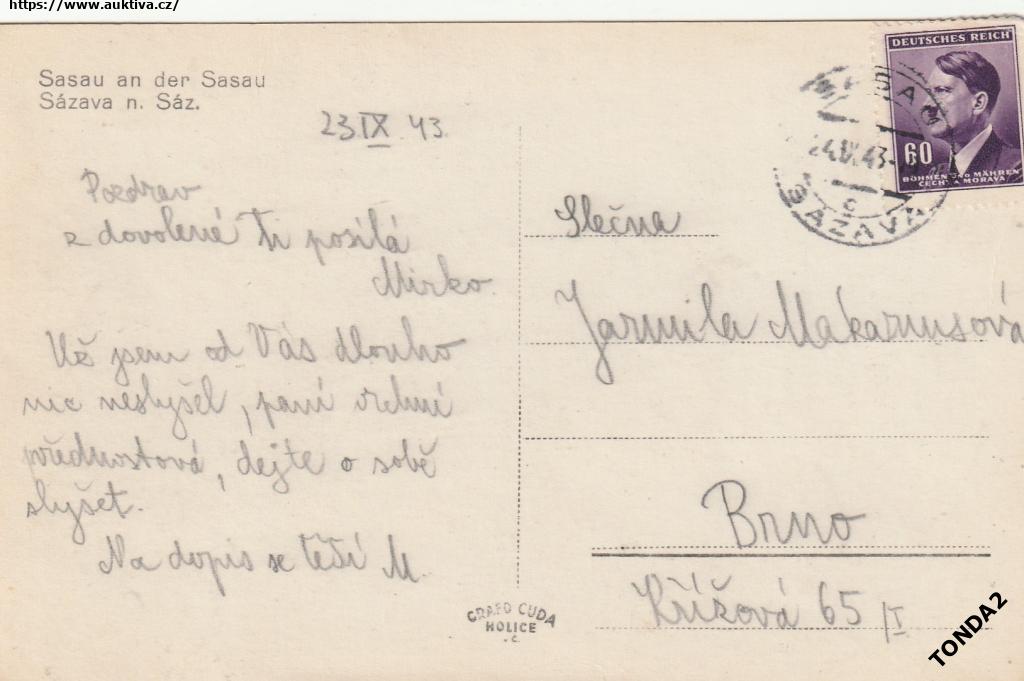 https://www.auktiva.cz/
Sasau an der Sasau
Sázava n. Sáz.
23 IX 43.
Pozdrav
z dovolené Ti posílá
Mirko.
Už jsem od Vás dlouho
nic neslyšel, paní vrchní
přednostová, dejte o sobě
slyšet.
Na dopis se těší M.
DEUTSCHES REICH
60
BÖHMEN UND MÄHREN
ČECHY A MORAVA
24.IX.43
c
SÁZAVA
Slečna
Jarmila Makariusová
Brno
Křížová 65/I
GRAFO ČUDA
HOLICE
TONDA2